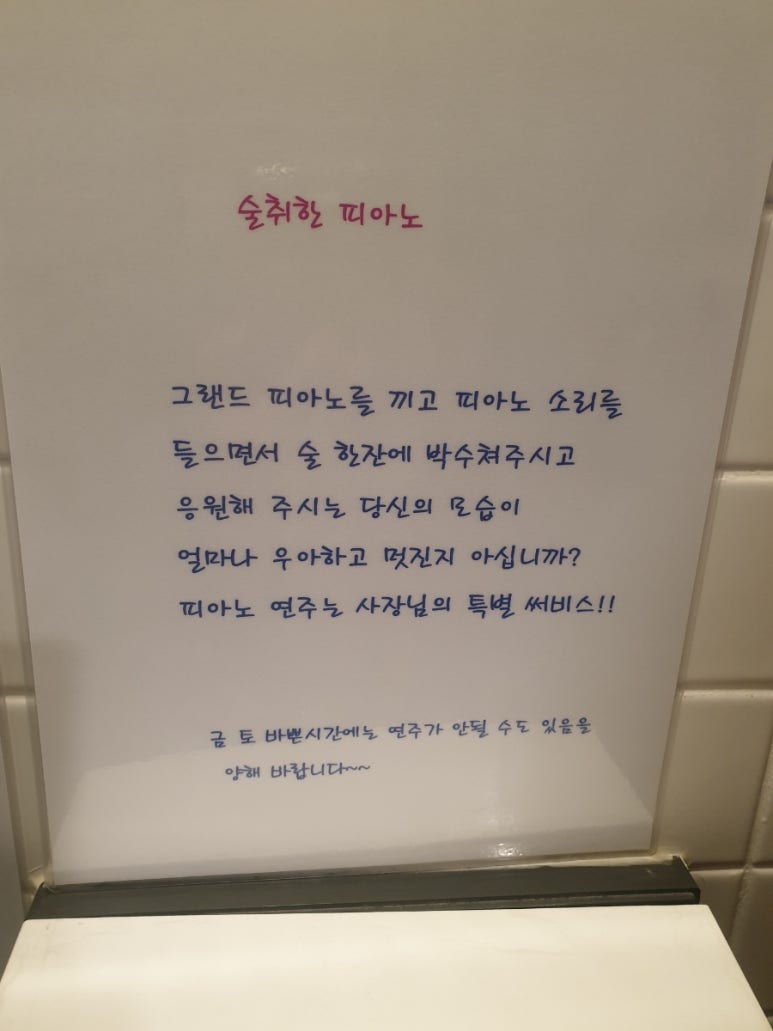 술취한 피아노
그랜드 피아노를 끼고 피아노 소리를
들으면서 술 한잔에 박수쳐주시고
응원해 주시는 당신의 모습이
얼마나 우아하고 멋진지 아십니까?
피아노 연주는 사장님의 특별 써비스!!
금 토 바쁜시간에는 연주가 안될 수도 있음을
양해 바랍니다~~